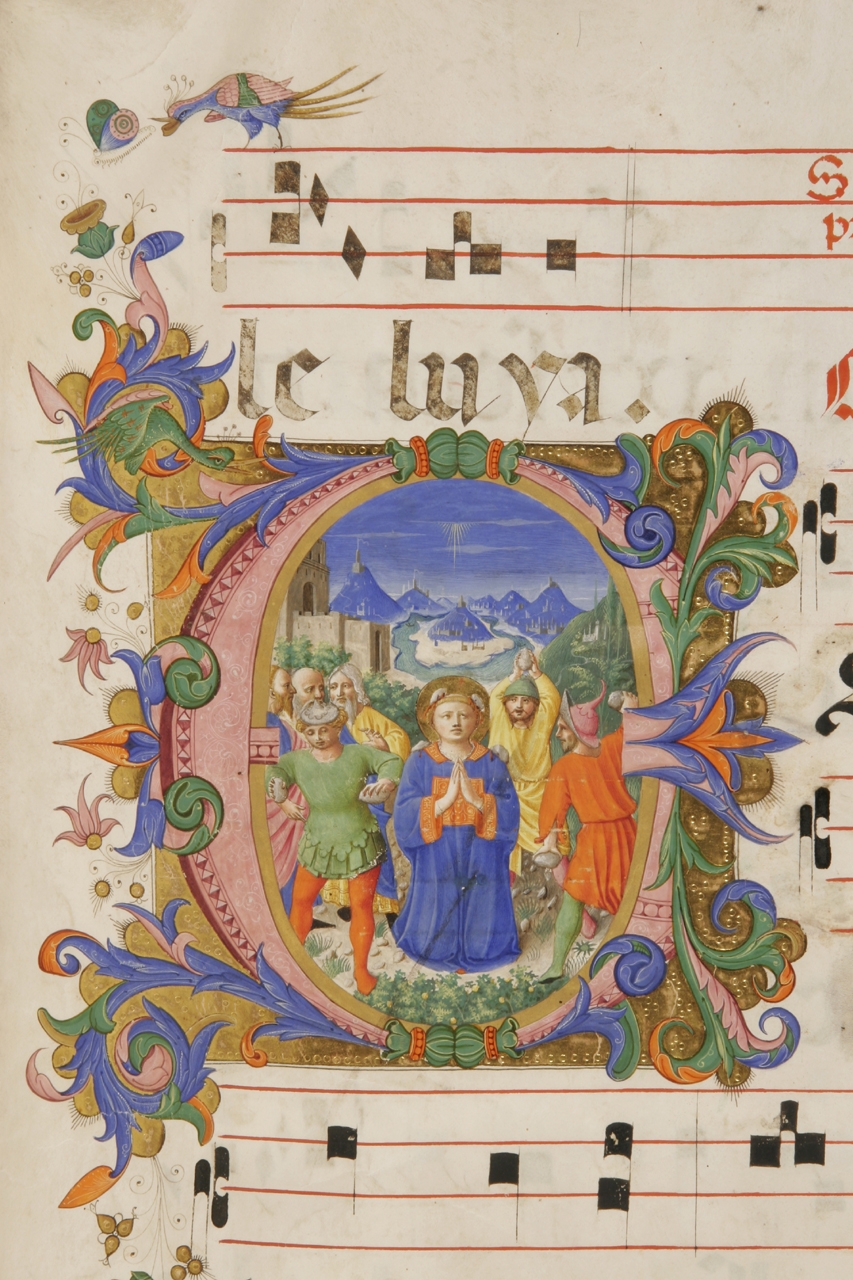 S
p
le luya.
E